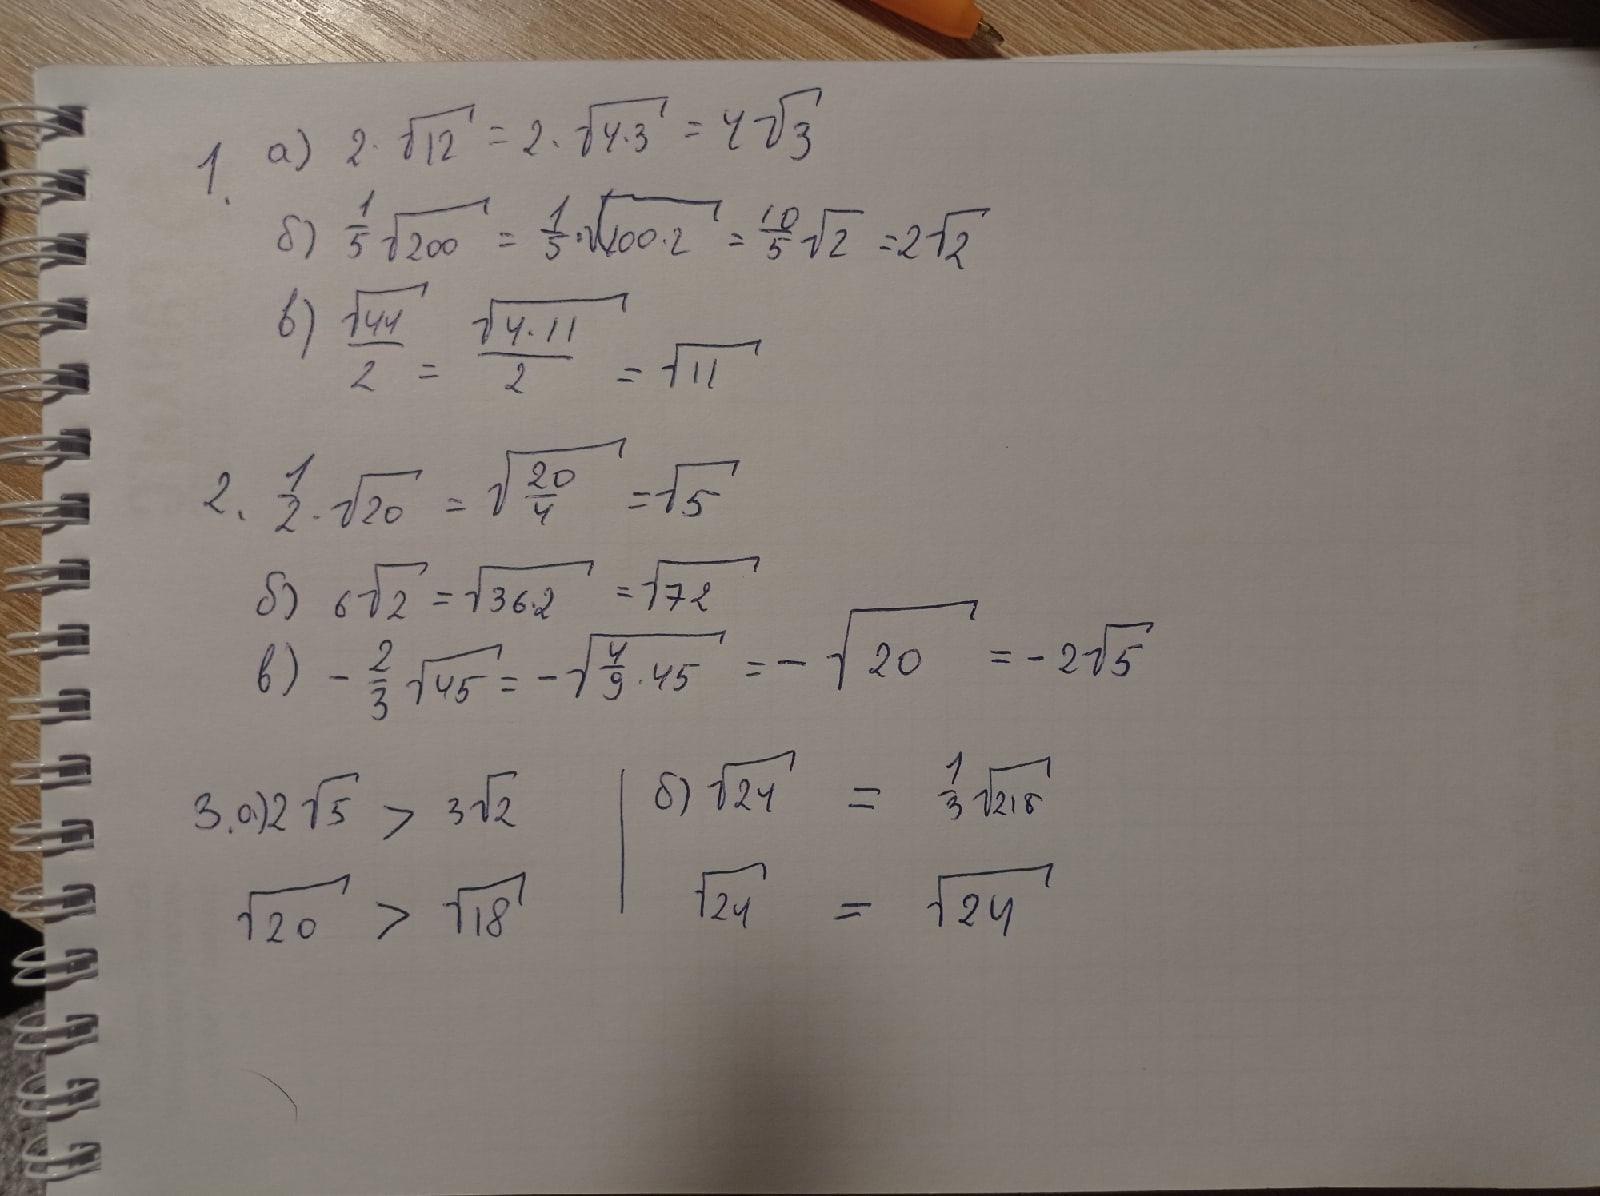 1. а) 2·√12 = 2·√4·3 = 4√3
б) 1/5 √200 = 1/5·√100·2 = 10/5 √2 = 2√2
в) √44/2 = √4·11/2 = √11
2. 1/2·√20 = √20/4 = √5
б) 6√2 = √36·2 = √72
в) -2/3 √45 = -√4/9·45 = -√20 = -2√5
3. а) 2√5 > 3√2
√20 > √18
б) √24 = 1/3 √216
√24 = √24